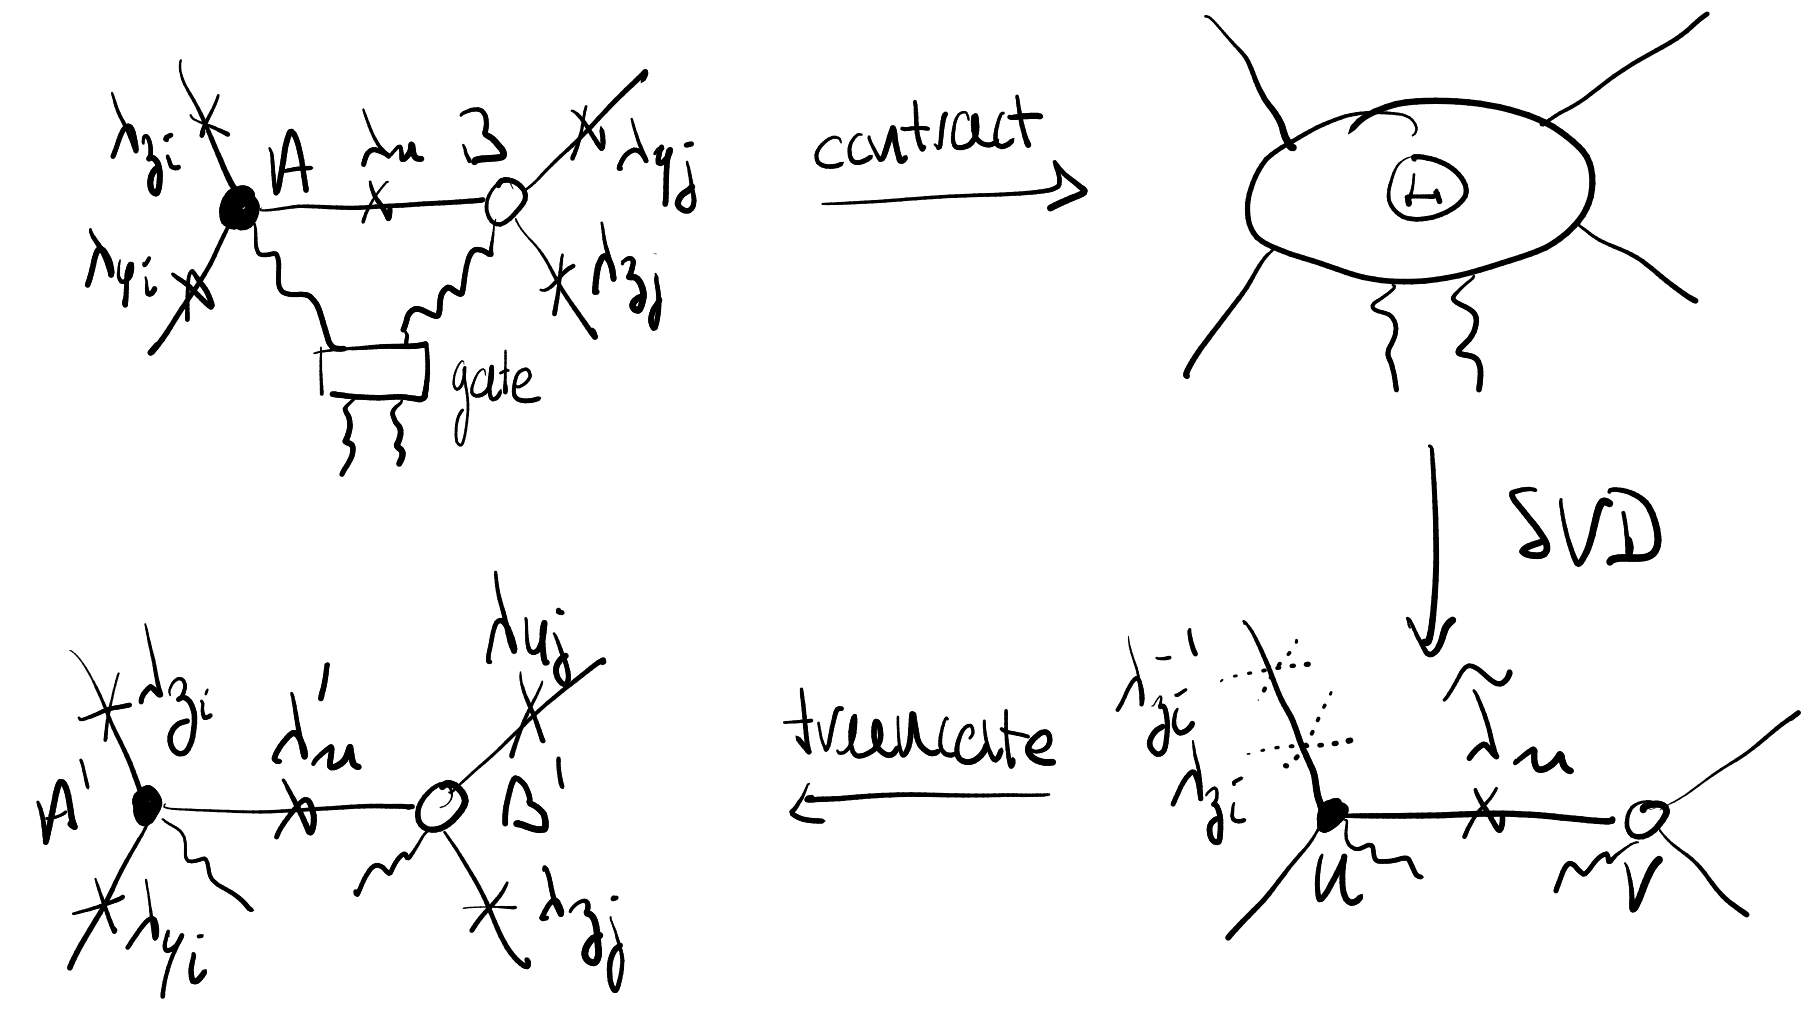 λ_{zi}
A
λ_x
B
λ_{yj}
λ_{yi}
λ_{zj}
gate
contract
Θ
SVD
λ_{zi}^{-1}
λ_{zi}
λ̃_x
U
V
truncate
λ_{zi}
λ'_x
λ_{yj}
A'
B'
λ_{yi}
λ_{zj}